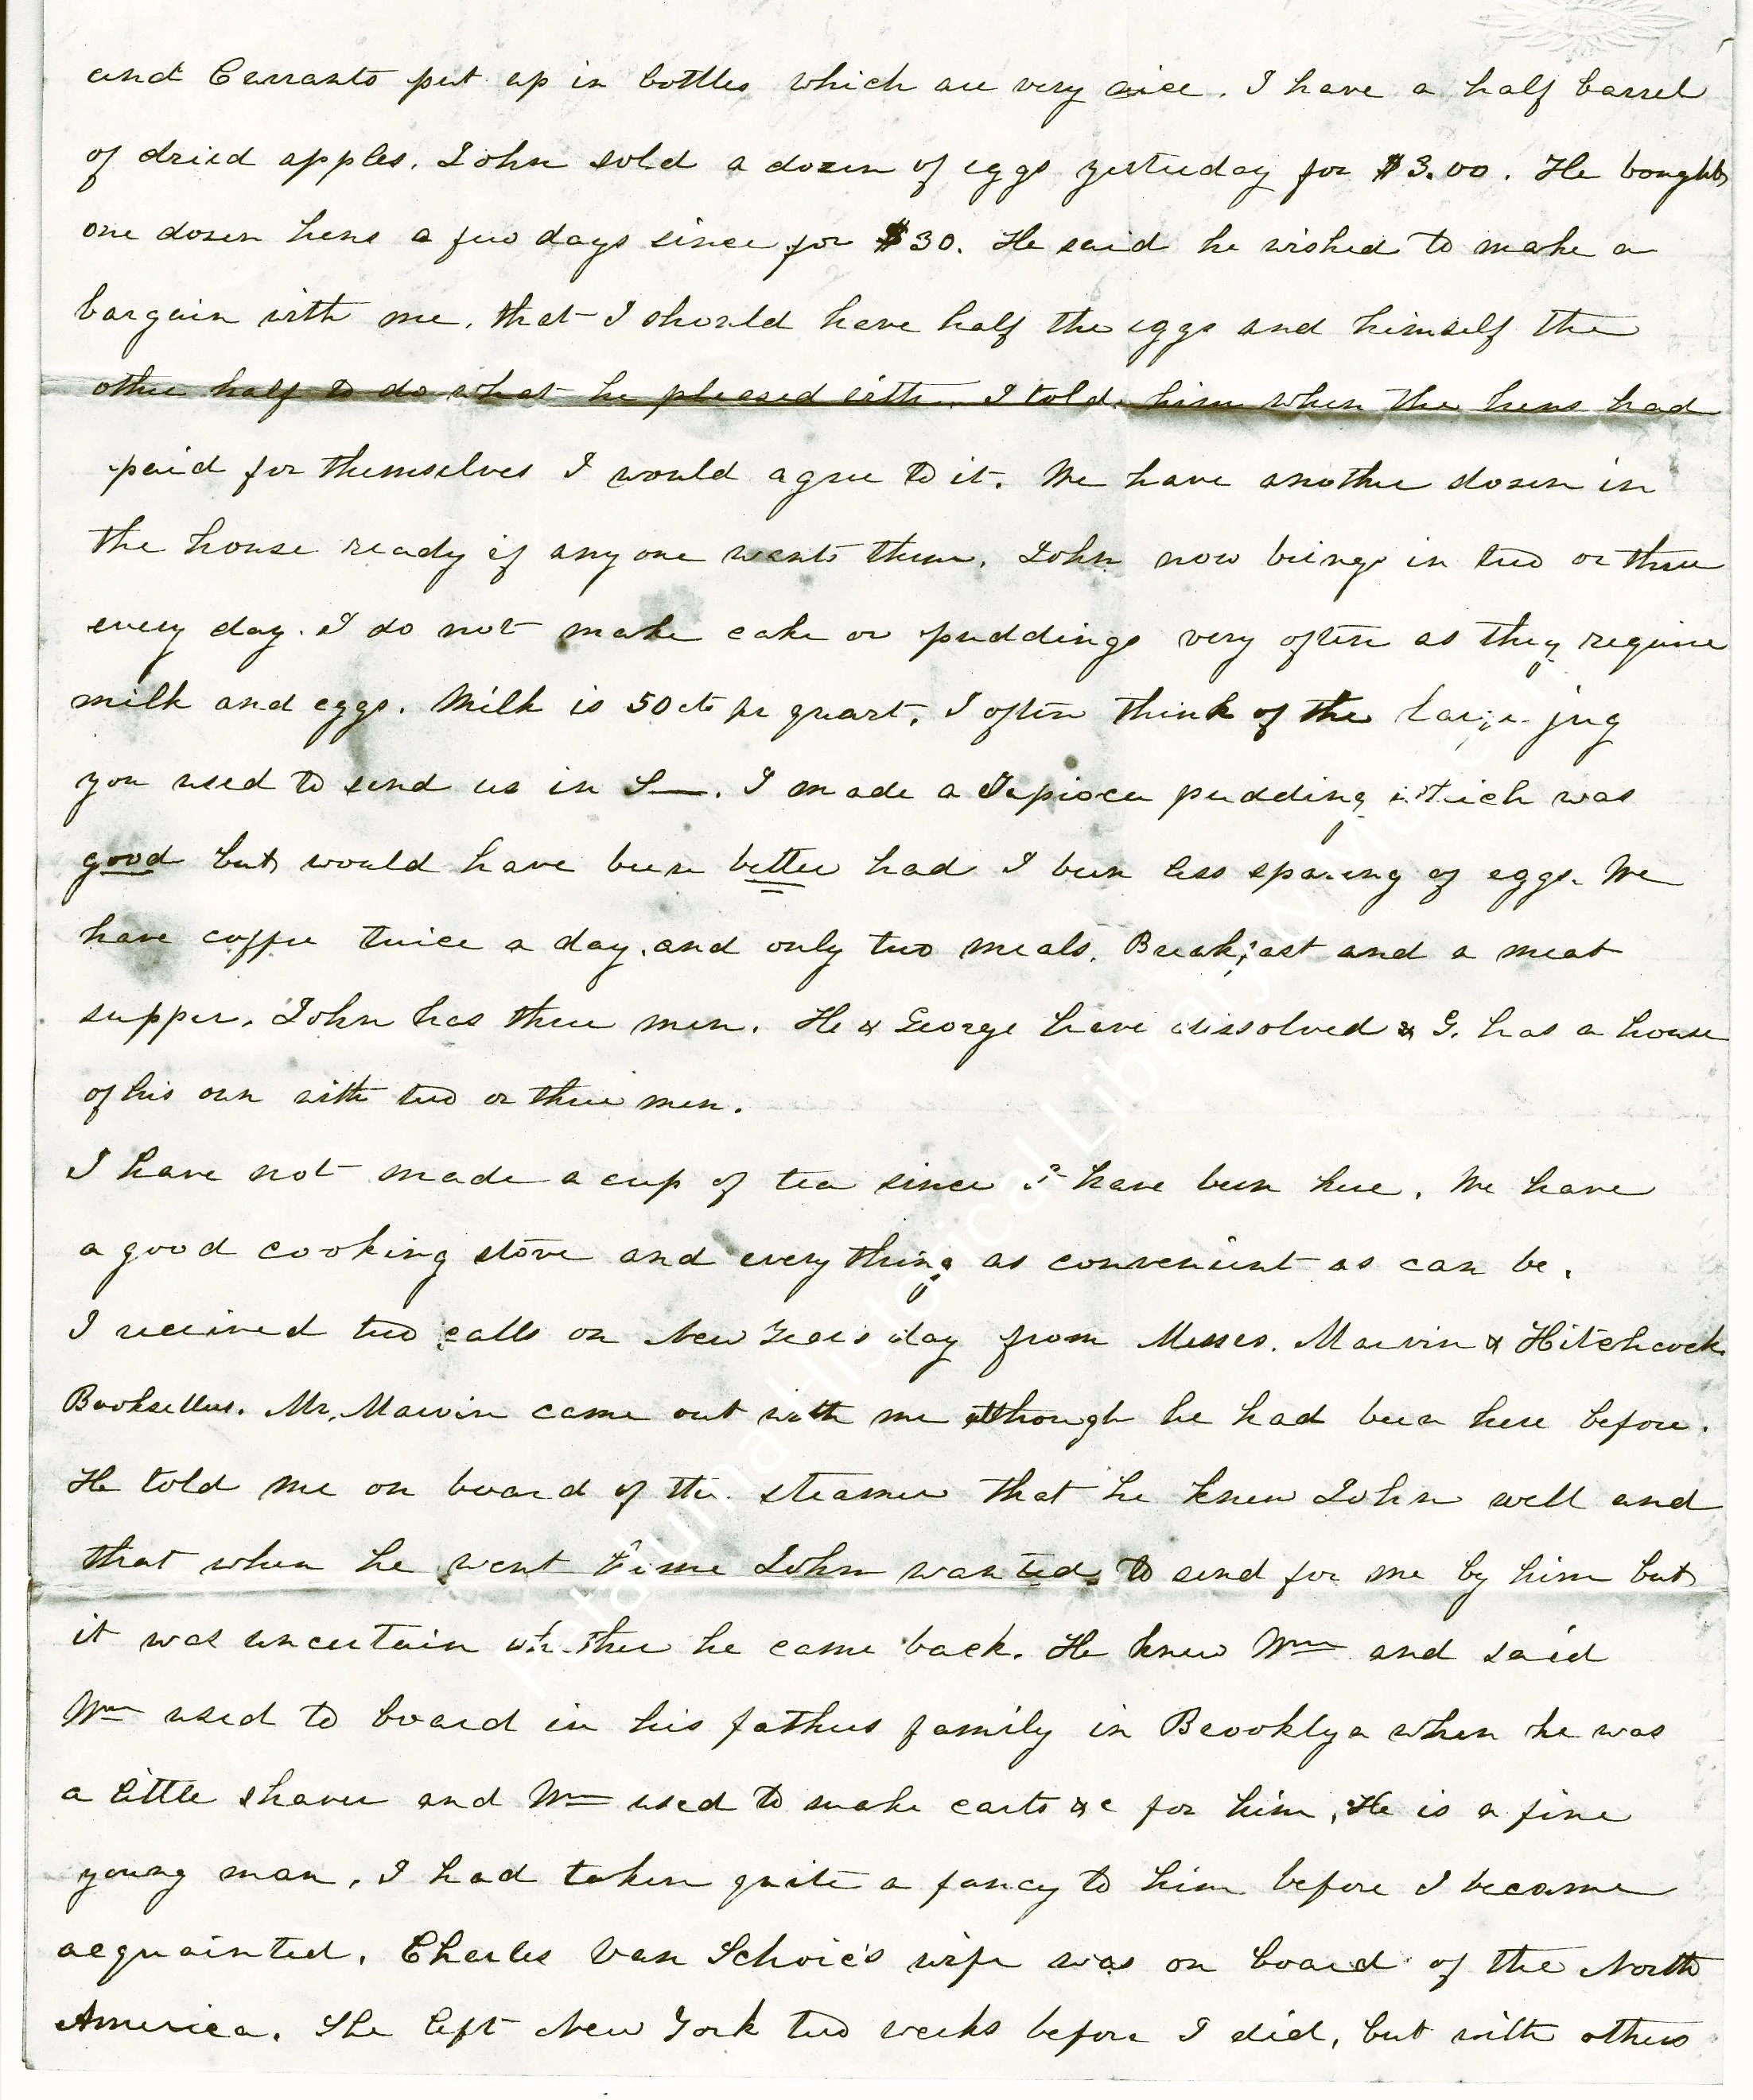 and Currants put up in bottles which are very nice. I have a half barrel
of dried apples. John sold a dozen of eggs yesterday for $3.00. He bought
one dozen hens a few days since for $30. He said he wished to make a
bargain with me, that I should have half the eggs and himself the
other half to do what he pleased with. I told him when the hens had
paid for themselves I would agree to it. We have another dozen in
the house ready if any one wants them. John now brings in two or three
every day. I do not make cake or puddings very often as they require
milk and eggs. Milk is 50 cts pr quart. I often think of the large jug
you used to send us in S—. I made a Tapioca pudding which was
good but would have been better had I been less sparing of eggs. We
have coffee twice a day, and only two meals. Breakfast and a meat
supper. John has three men. He & George have dissolved & G. has a house
of his own with two or three men.
I have not made a cup of tea since I have been here. We have
a good cooking stove and every thing as convenient as can be.
I received two calls on New Years day from Messrs. Marvin & Hitchcock
Booksellers. Mr. Marvin came out with me although he had been here before.
He told me on board of the steamer that he knew John well and
that when he went home John wanted to send for me by him but
it was uncertain whether he came back. He knew Wm and said
Wm used to board in his fathers family in Brooklyn when he was
a little shaver and Wm used to make carts &c for him. He is a fine
young man. I had taken quite a fancy to him before I became
acquainted. Charles Van Schoic's wife was on board of the North
America. She left New York two weeks before I did, but with others
Petaluma Historical Library